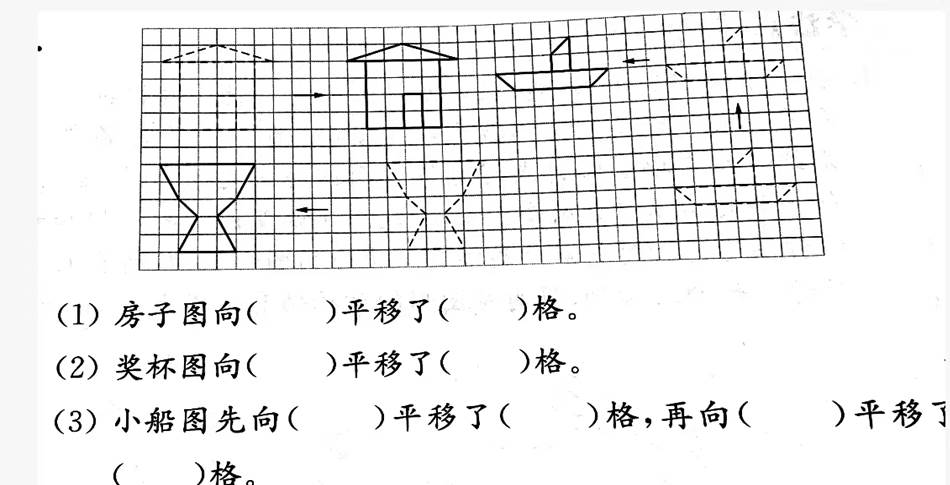 (1) 房子图向(    )平移了(    )格。
(2) 奖杯图向(    )平移了(    )格。
(3) 小船图先向(    )平移了(    )格,再向(    )平移了
(    )格。